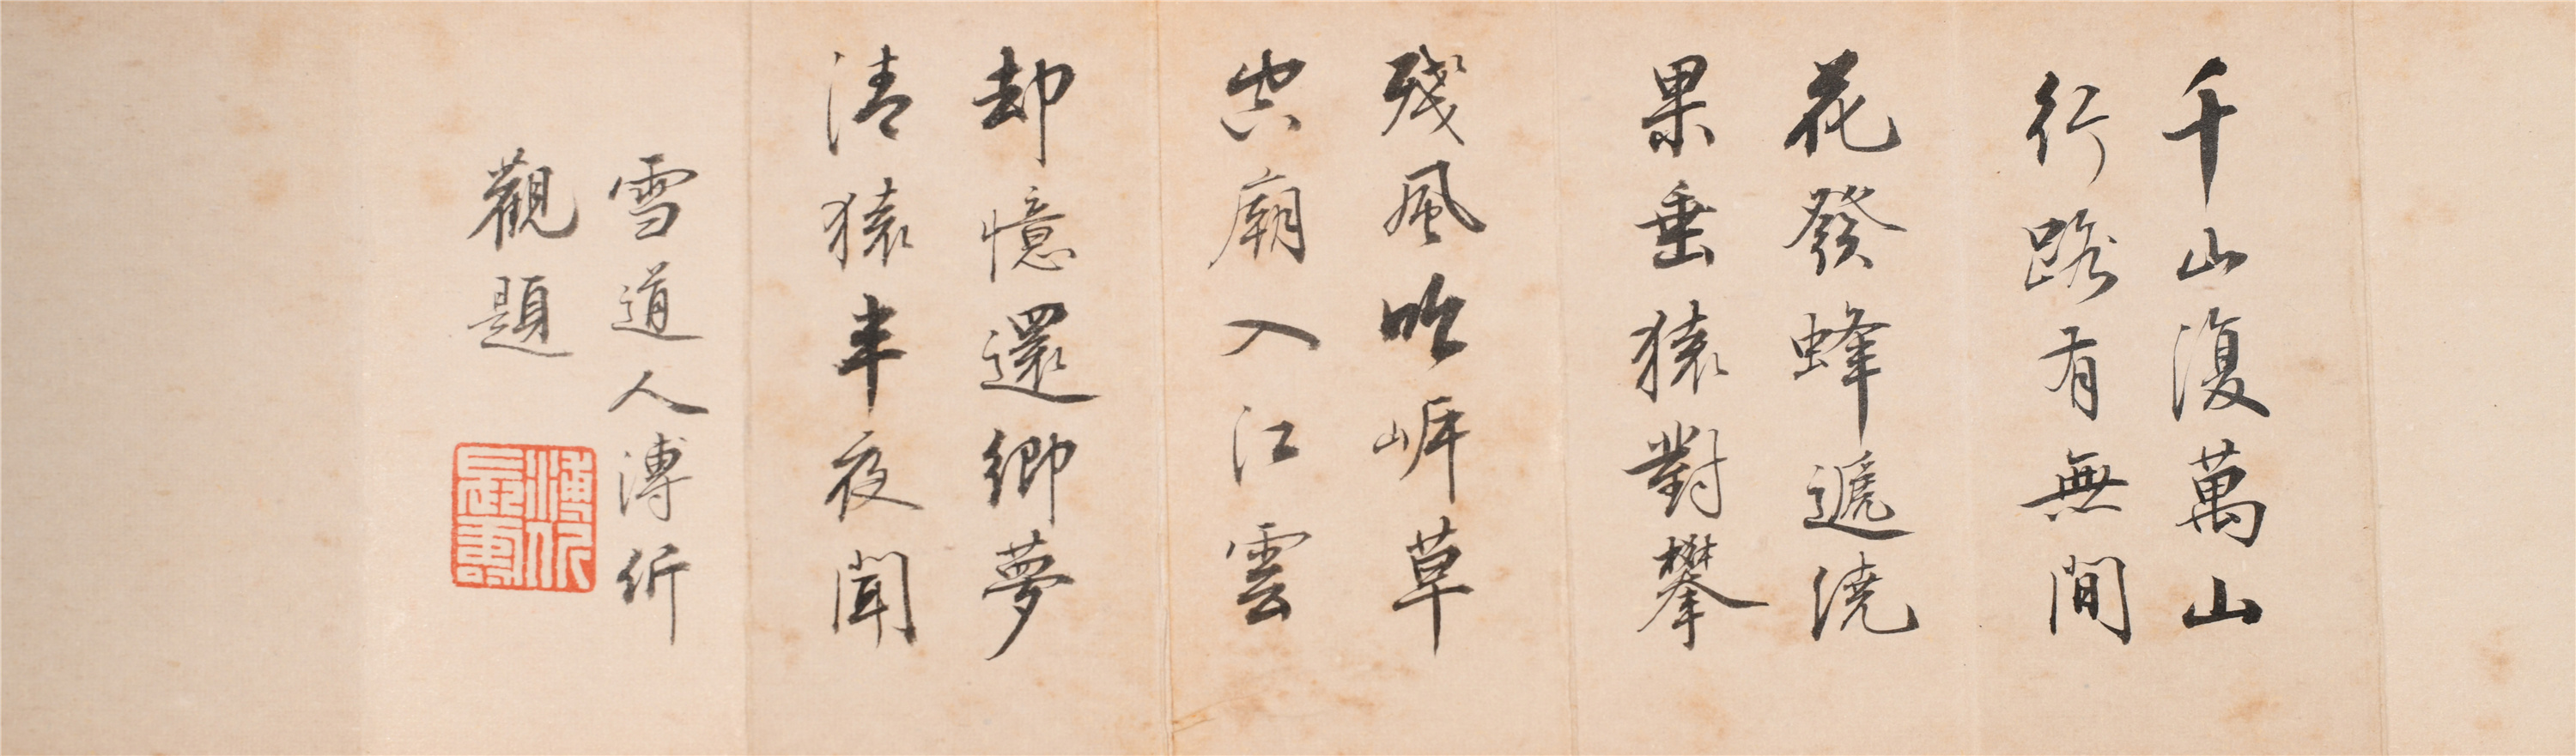 千山復萬山
行路有無間
花發蜂遞繞
果垂猿對攀
殘風吹岸草
空廟入江雲
却憶還鄉夢
清猿半夜聞
雪道人溥伒
觀題
溥伒長壽